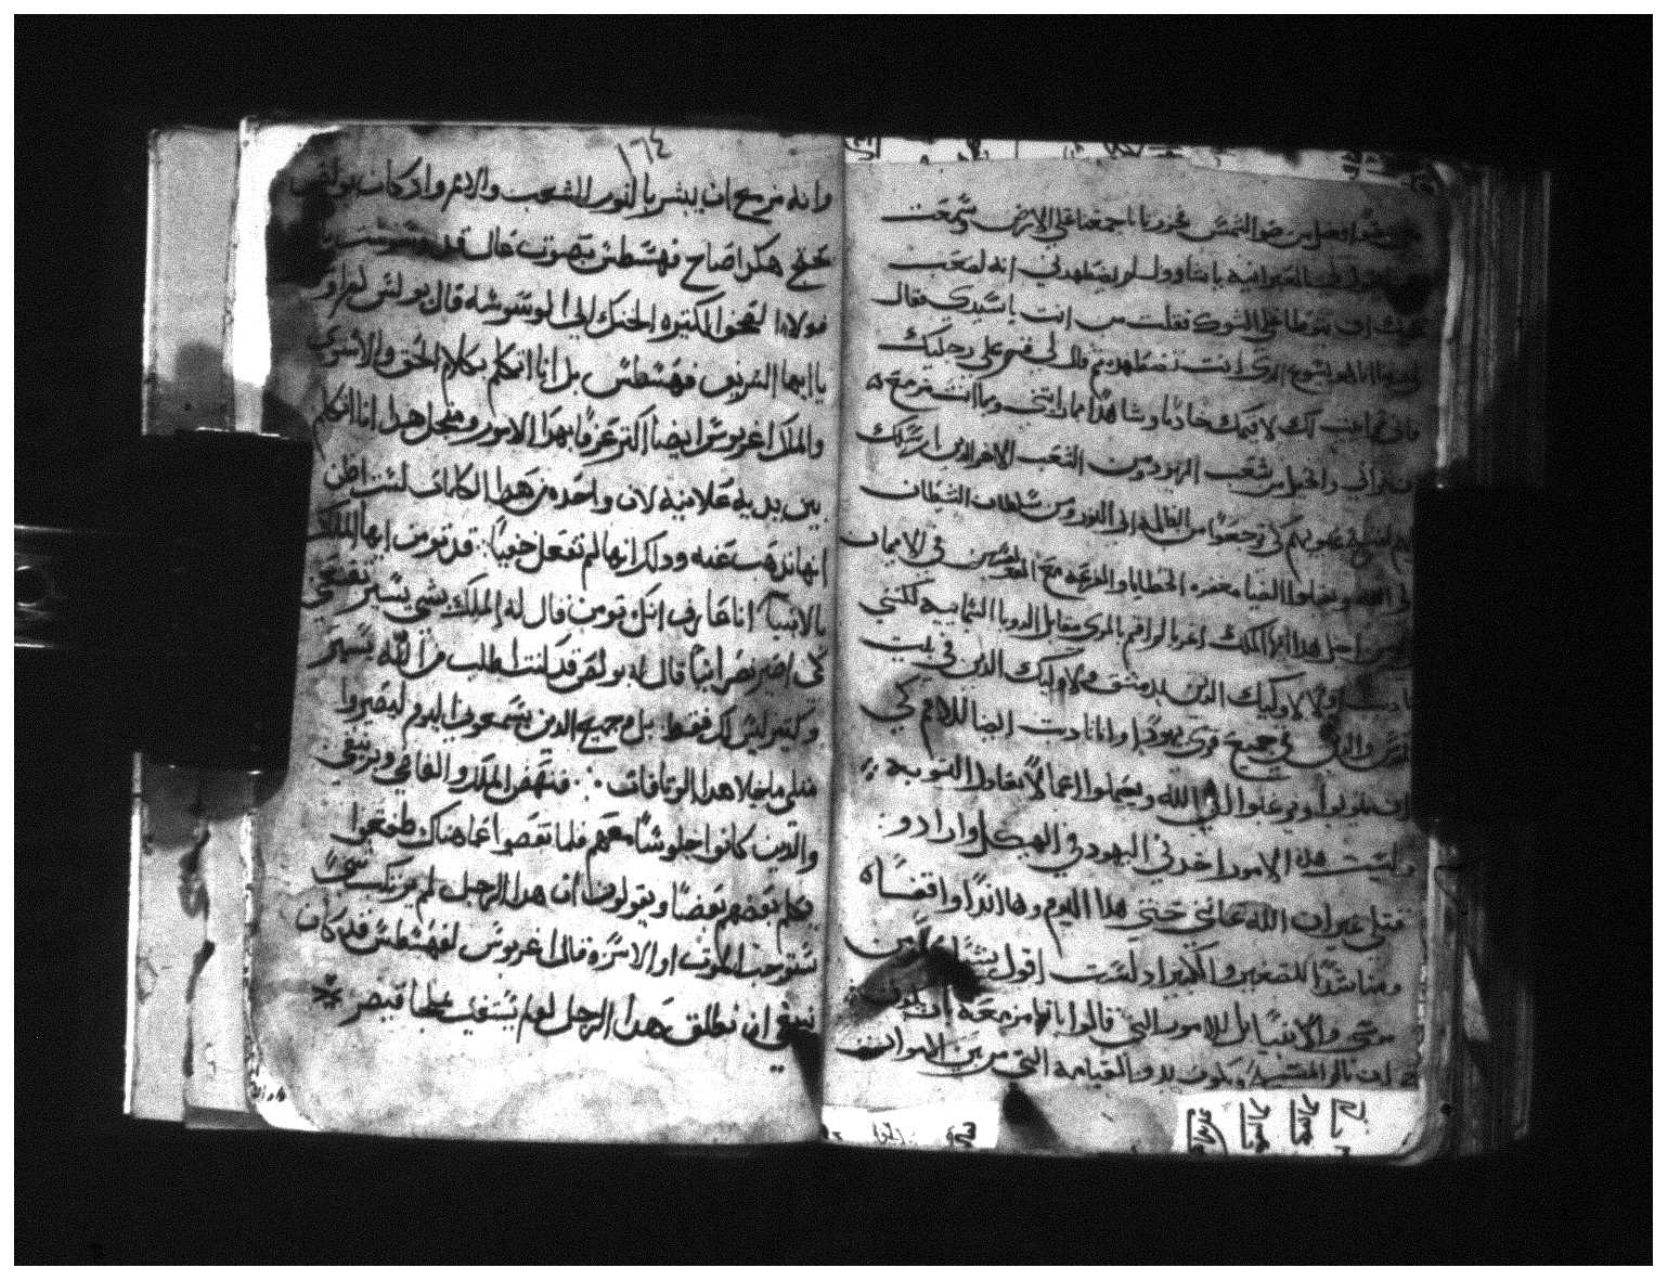 افضل من ضو الشمس نحونا فاجمعنا على الارض وسمعت
بالعبرانيه يا شاوول لم تضطهدني انه لصعب
عليك ان تتوطا على الشوك فقلت من انت يا سيدي فقال
انا هو يشوع الدي انت تضطهد ثم قال لي قم على رجليك
لك لاقيمك خادما وشاهدا مما رايتني وما انت مزمع ه
تراني من شعب اليهود ومن الشعب الاخر الدين ارسلك
عيونهم كي يرجعوا من الظلمه الي النور ومن سلطان الشيطان
الي الله الخطايا والقرعه مع القديسين في الايمان
من اجل هدا ايها الملك اغربا لم اقم بالمري مقابل الرويا السمانيه لكنني
ناديت لاوليك الدين بدمشق ولاوليك الدين في بيت
في جميع قرى يهودا وانا ناديت ايضا للامم كي
ان يتوبوا ويرغبوا الي الله ويعملوا اعمالا تعادل التوبه
هده الامور اخدني اليهود في الهيكل وارادو
قتلي غير ان الله عانني حتي هدا اليوم وها اندا واقفا ه
ومناشدا للصغير والكبير اد لست اقول شيا
موسي والانبيا بل للامور التي قالوا بانها مزمعه ان تكون
ان تالم المسيح ويكون بدو القيامه التي من بين الاموات
١٦٤
وانه مزمع ان يبشر بالنور الشعب والامم واد كان بولس
يحتج هكدا صاح فهسطس بصوت عال قد وسوست يا
بولس التصحف الكتيره الحنك الي الوسوسه قال بولس لم اوسوس
يا ايها الشريف فهسطس بل انا اتكلم بكلام الحق والاستوي
والملك اغربوس ايضا اكتر عرفا بهدا الامور ومن اجل هدا انا اتكلم
بين يديه علانيه لان واحده من هدا الكلمات لست اظن
انها تدهب عنه ودلك انها لم تفعل خفيا قد تومن ايها الملك
بالانبيا انا عارف انك تومن قال له الملك بشي يسير تقنعني
كي اصير نصرانيا قال له بولس قد كنت اطلب من الله بيسير
وكتير ليس لك فقط بل وجميع الدين يسمعوني اليوم ليصيروا
متلي ما خلا هدا الوتاقات فنهض الملك والقاضي وبرنيقي
والدين كانوا جلوسا معهم فلما تقصوا عما هناك طفقوا
يكلم بعضهم بعضا ويقولون ان هدا الرجل لم يرتكب شيا
يستوجب الموت او الاسره قال اغربوس لفهسطس قد كان
ينبغي ان نطلق هدا الرجل لو لم يستغيث علجا قيصر